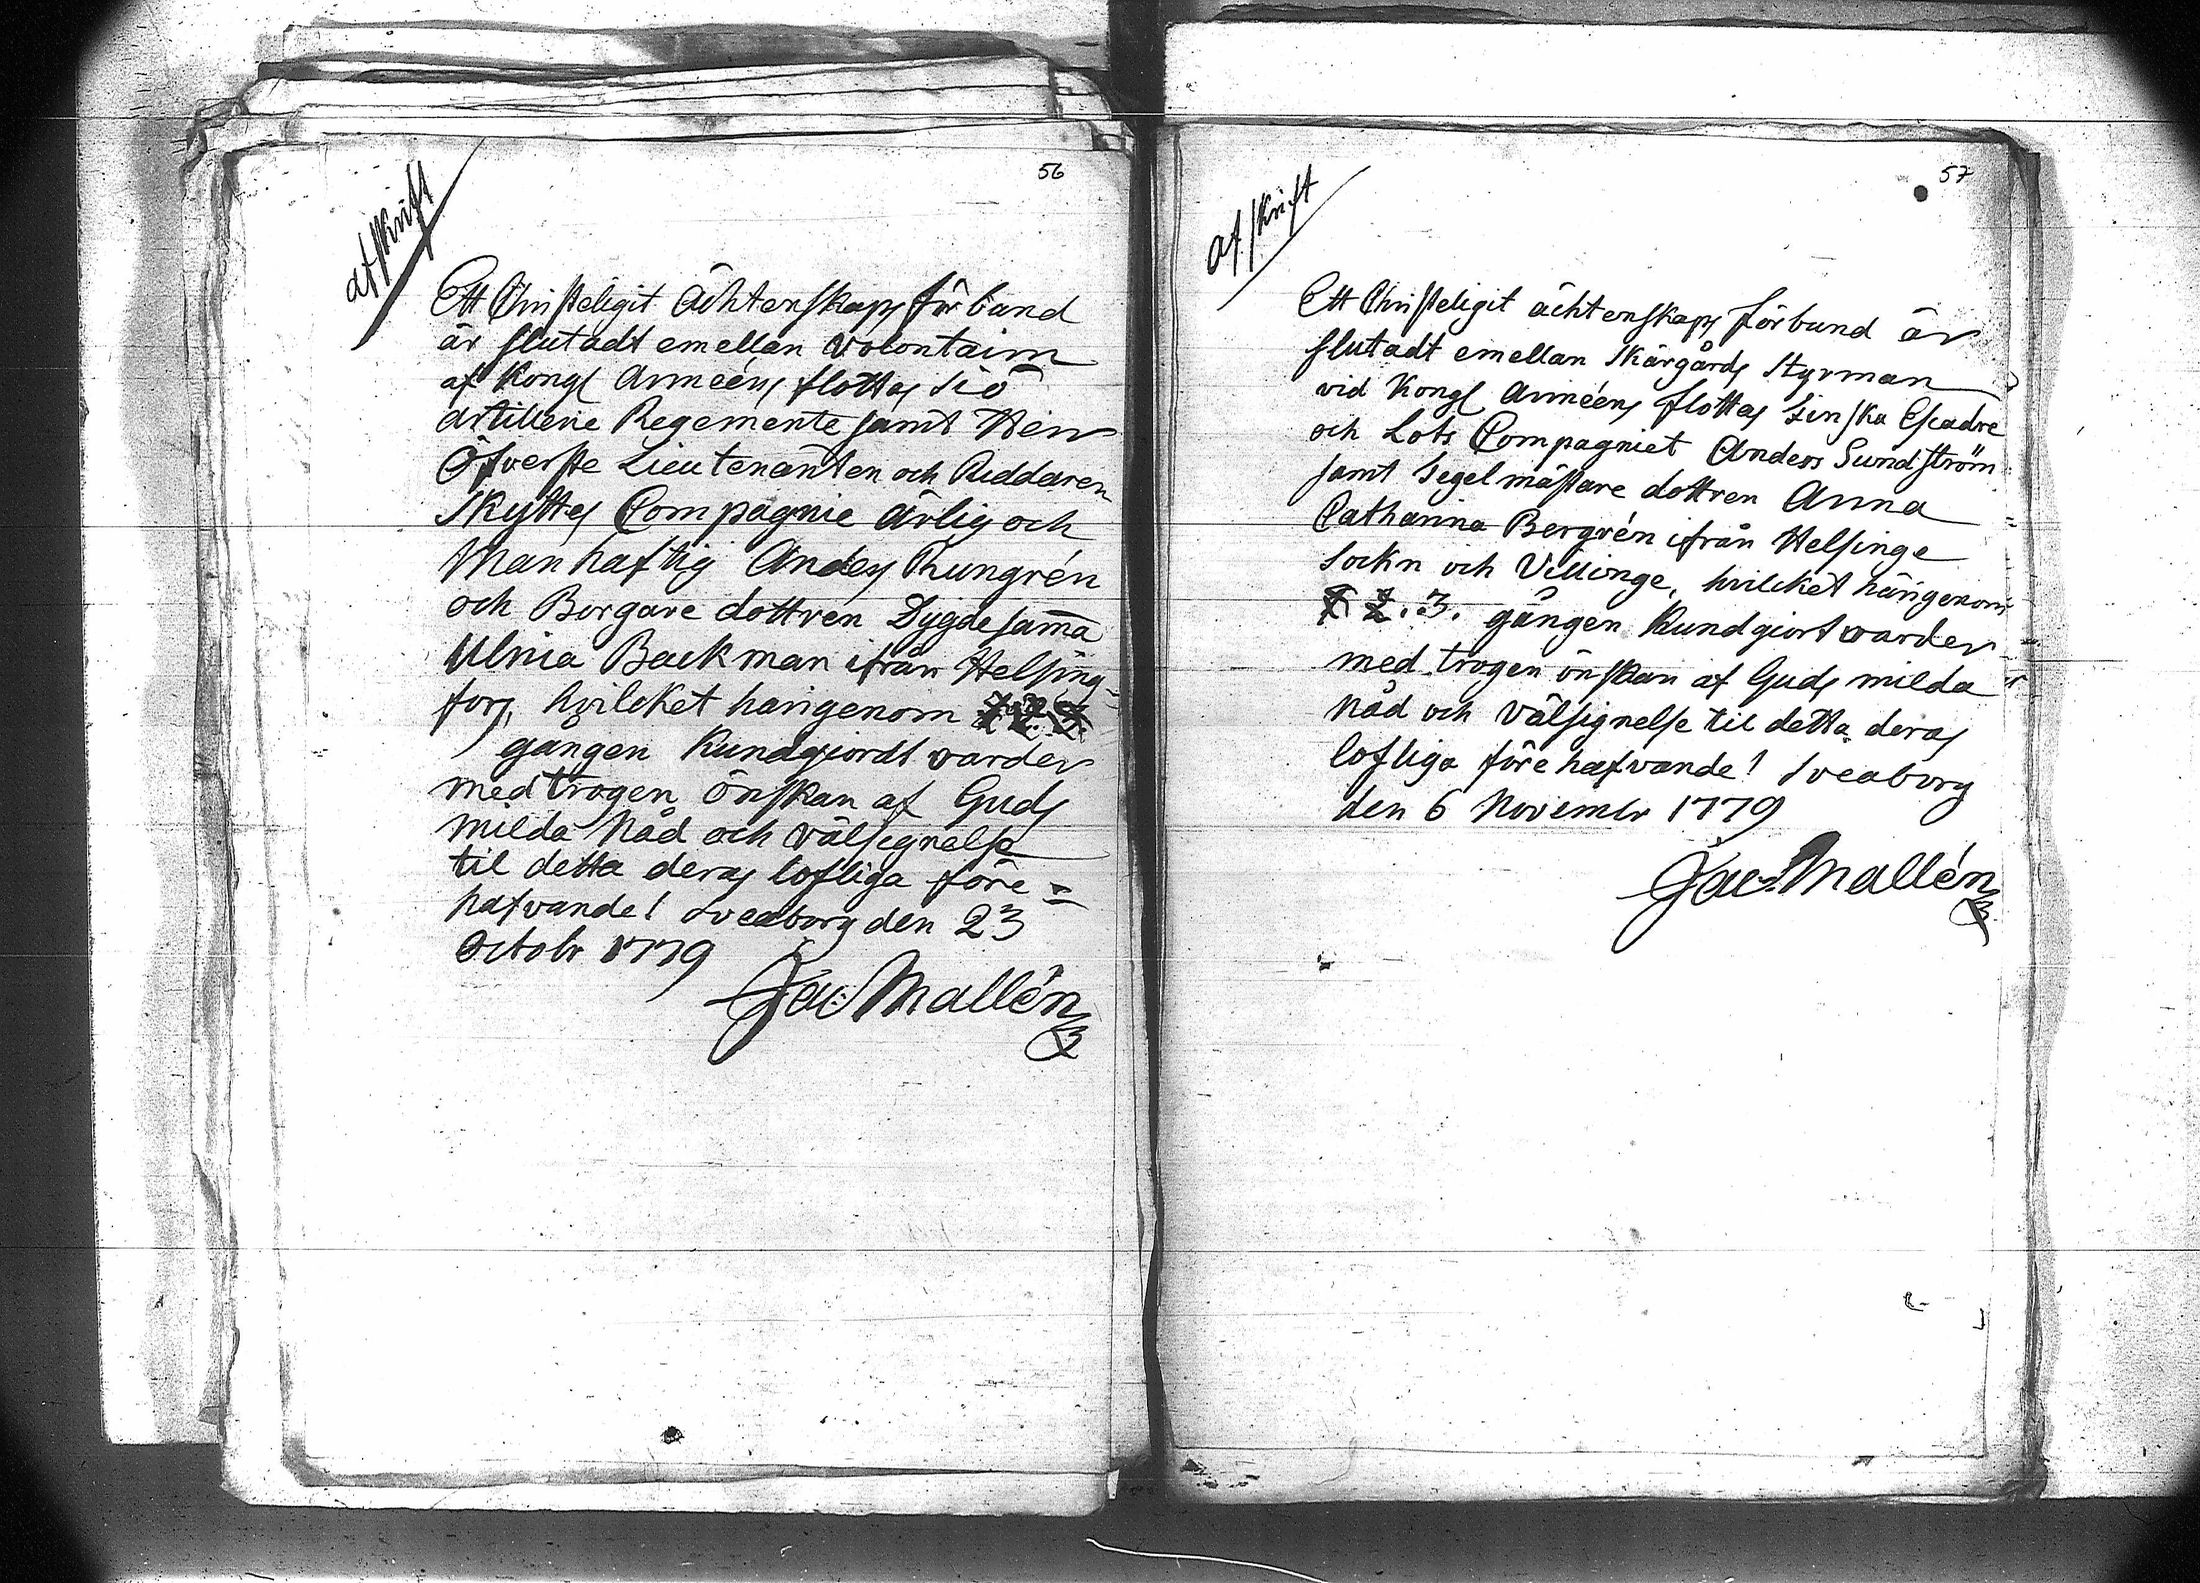 56
afskrift
Ett Christeligit Ächtenskaps förbund
är slutadt emellan Volontairn
af Kongl Arméens flottas Siö
Artillerie Regemente samt Herr
Öfverste Lieutenanten och Riddaren
Skyttes Compagnie Ärlig och
Manhaftig Anders Rungrén
och Borgare dottren Dygdesam̄a
Ulrica Backman ifrån Helsing-
fors, hvilcket härigenom 1. 2. 3.
gången kundgiordt warder
med trogen önskan af Guds
milda Nåd och välsignelse
til detta deras lofliga före=
hafvande! Sveaborg den 23
Octobr 1779
Jac: Mallén
57
afskrift
Ett Christeligit ächtenskaps förbund är
slutadt emellan Skärgårds Styrman
vid Kongl Arméens flottas Finska Escadre
och Lots Compagniet Anders Sundström
samt Segelmästare dottren Anna
Catharina Bergrén ifrån Helsinge
Sockn och Villinge, hvilcket härigenom
1. 2. 3. gången kundgiort warder
med trogen önskan af Guds milda
Nåd och välsignelse til detta deras
lofliga förehafvande! Sveaborg
den 6 Novembr 1779
Jac: Mallén